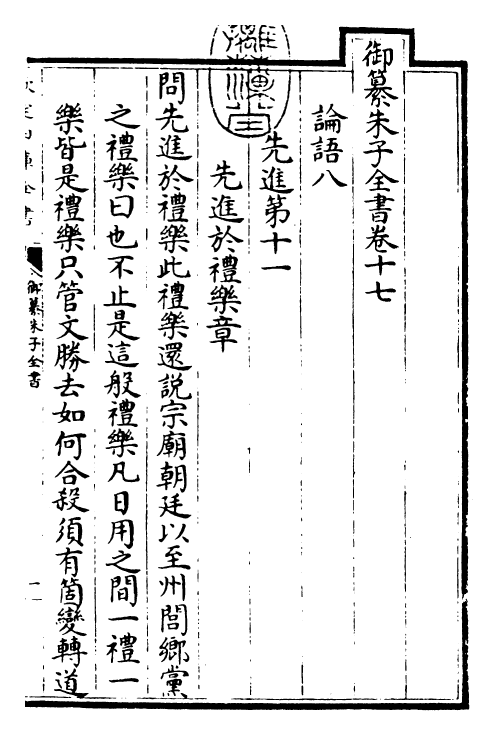 御纂朱子全書卷十七
論語八
先進第十一
先進於禮樂章
問先進於禮樂此禮樂還說宗廟朝廷以至州閭鄉黨
之禮樂曰也不止是這般禮樂凡日用之間一禮一
樂皆是禮樂只管文勝去如何合殺須有箇變轉道
御纂朱子全書